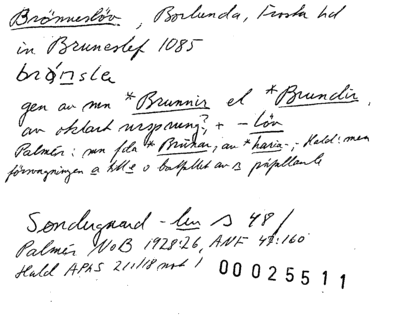 Brönneslöv, Borlunda, Frosta hd
in Bruneslef 1085
brǿnsla
gen av mn *Brunnir el *Brundir,
av oklart ursprung? + -löv
Palmér: mn fda *Brūnar, av *haria-; Hald: men
försvagningen a till e o bortfallet av s påfallande
Søndergaard -lev s 48/
Palmér NoB 1928:26, ANF 47:160
Hald APhS 21/118 not 1
00025511